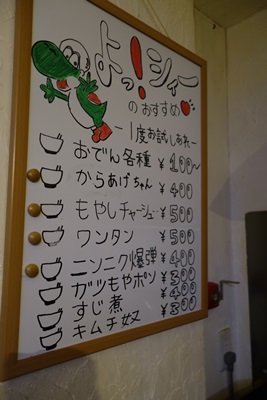 よっ!シィー
のおすすめ
ー1度お試しあれー
おでん各種 ¥100~
からあげちゃん ¥400
もやしチャーシュー ¥500
ワンタン ¥500
ニンニク爆弾 ¥400
ガツもやポン ¥300
すじ煮 ¥400
キムチ奴 ¥300